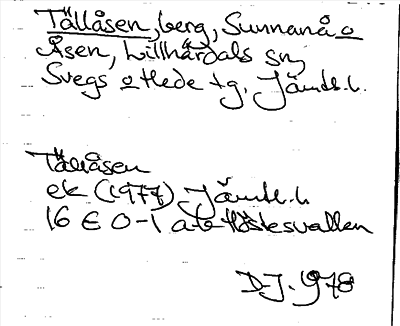 Tällåsen, berg, Sunnanå o
Åsen, Lillhärdals sn,
Svegs o Hede tg. Jämtl. l.
Tällåsen
ek (1977) Jämtl. l.
16 E 0-1 a-b Höstesvallen
D.J. 1978